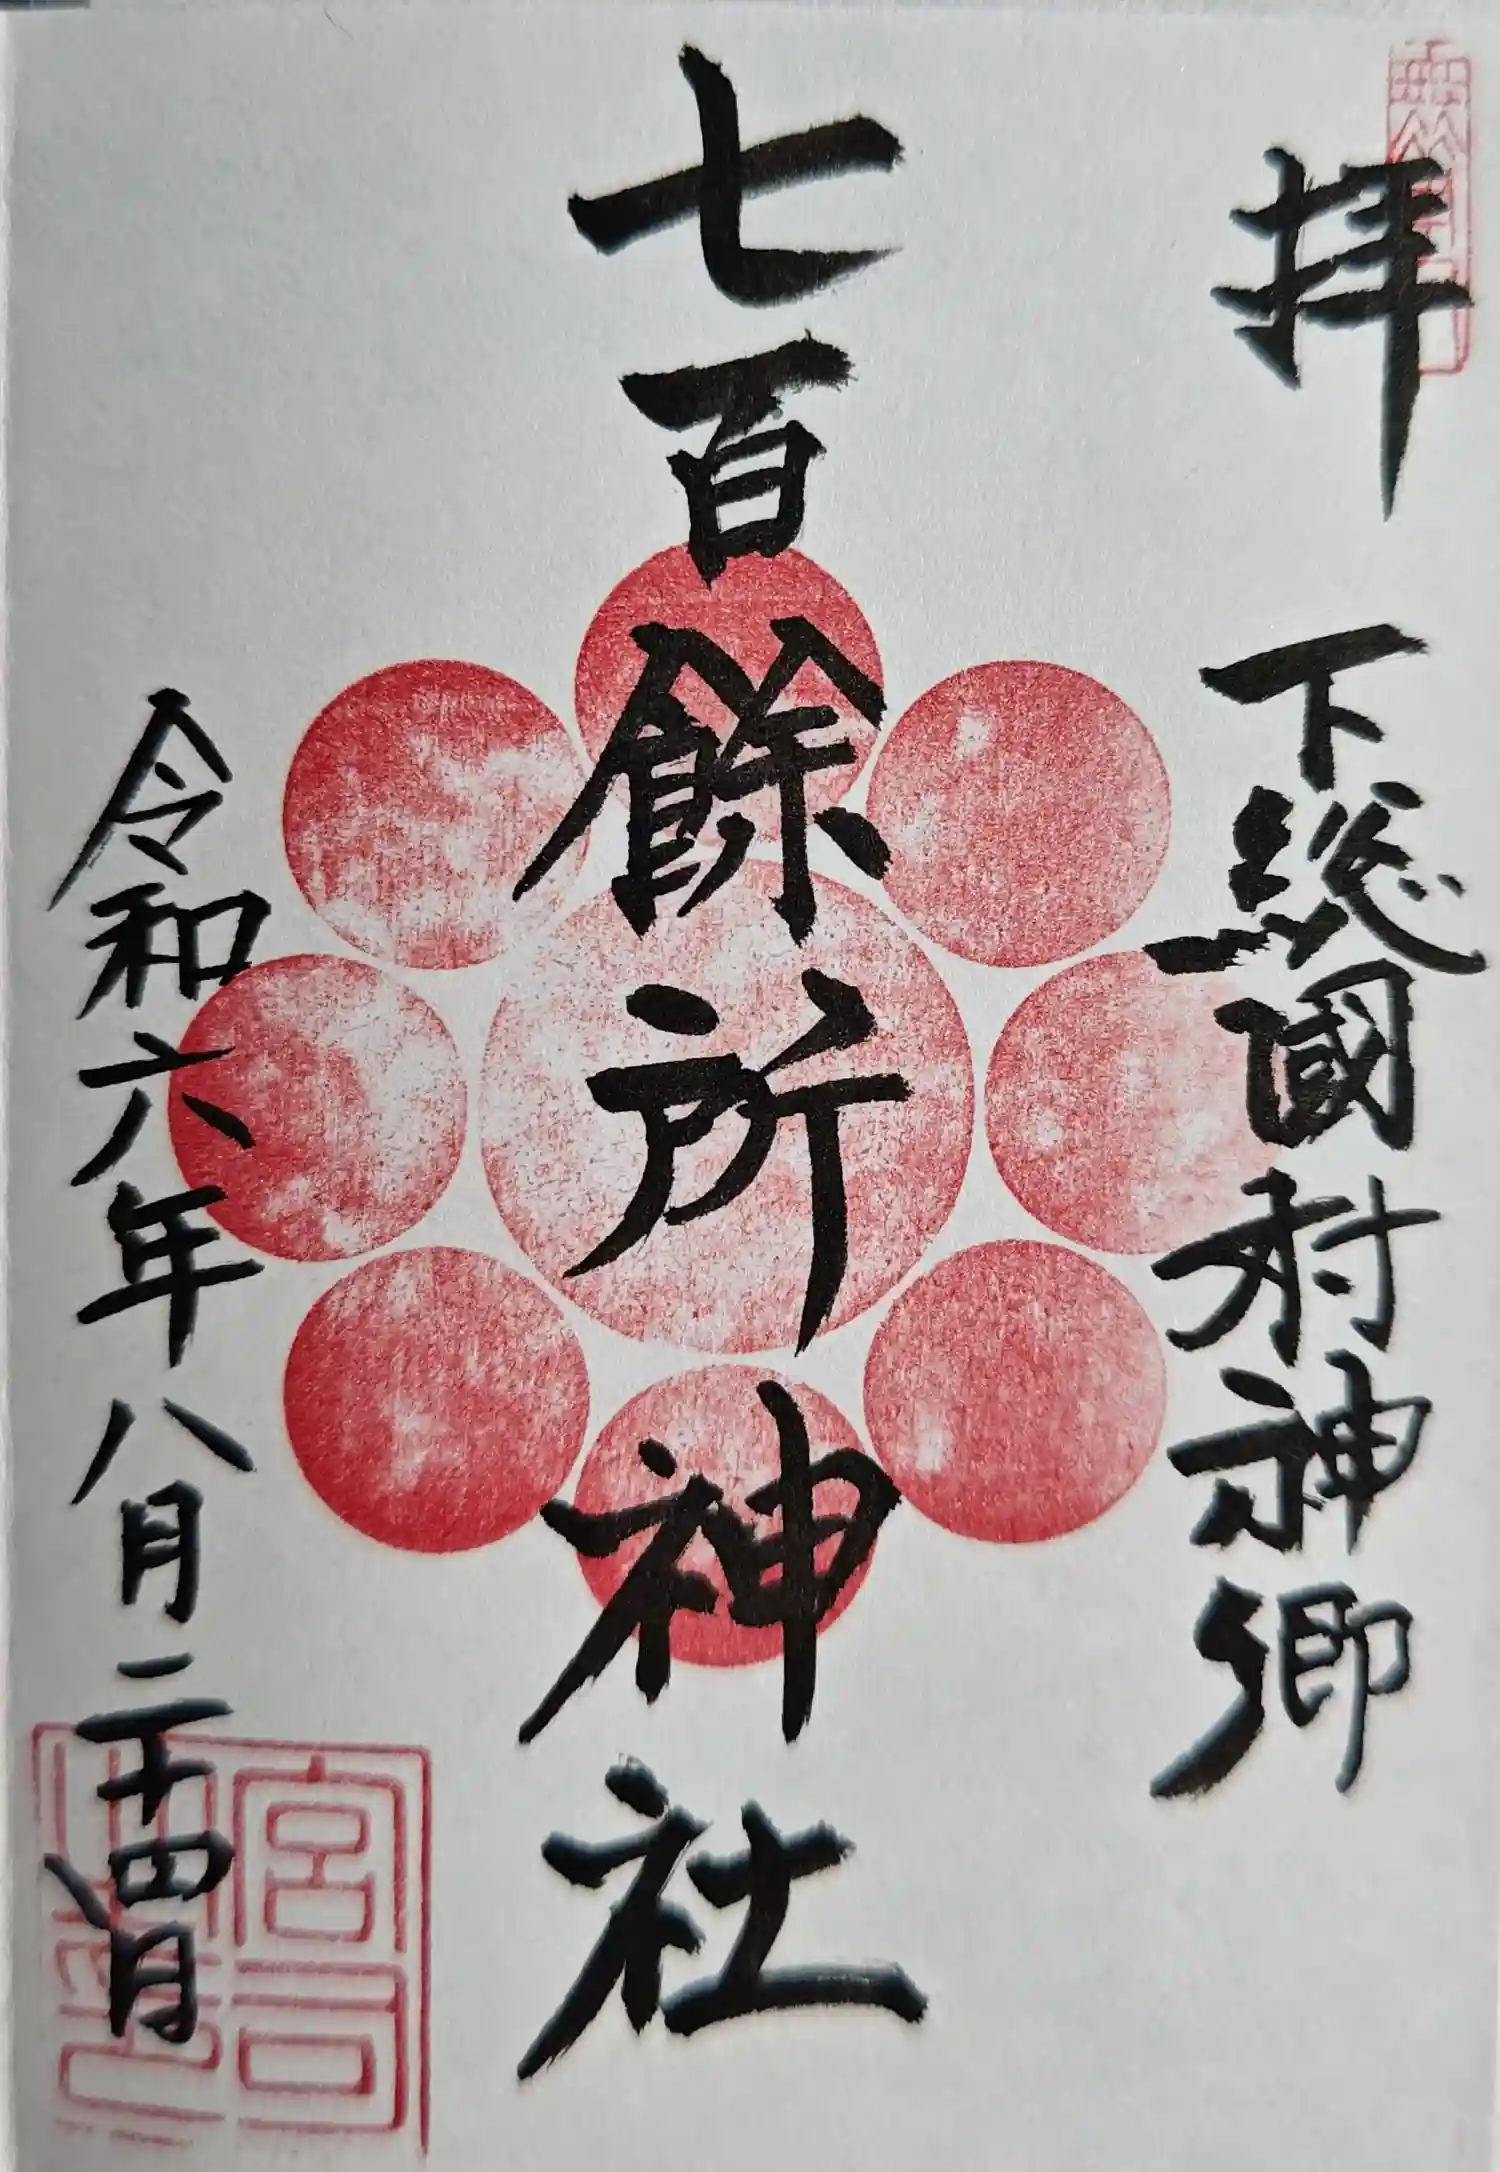 拝 下総國村神郷
七百餘所神社
令和六年八月二十四日
宮司